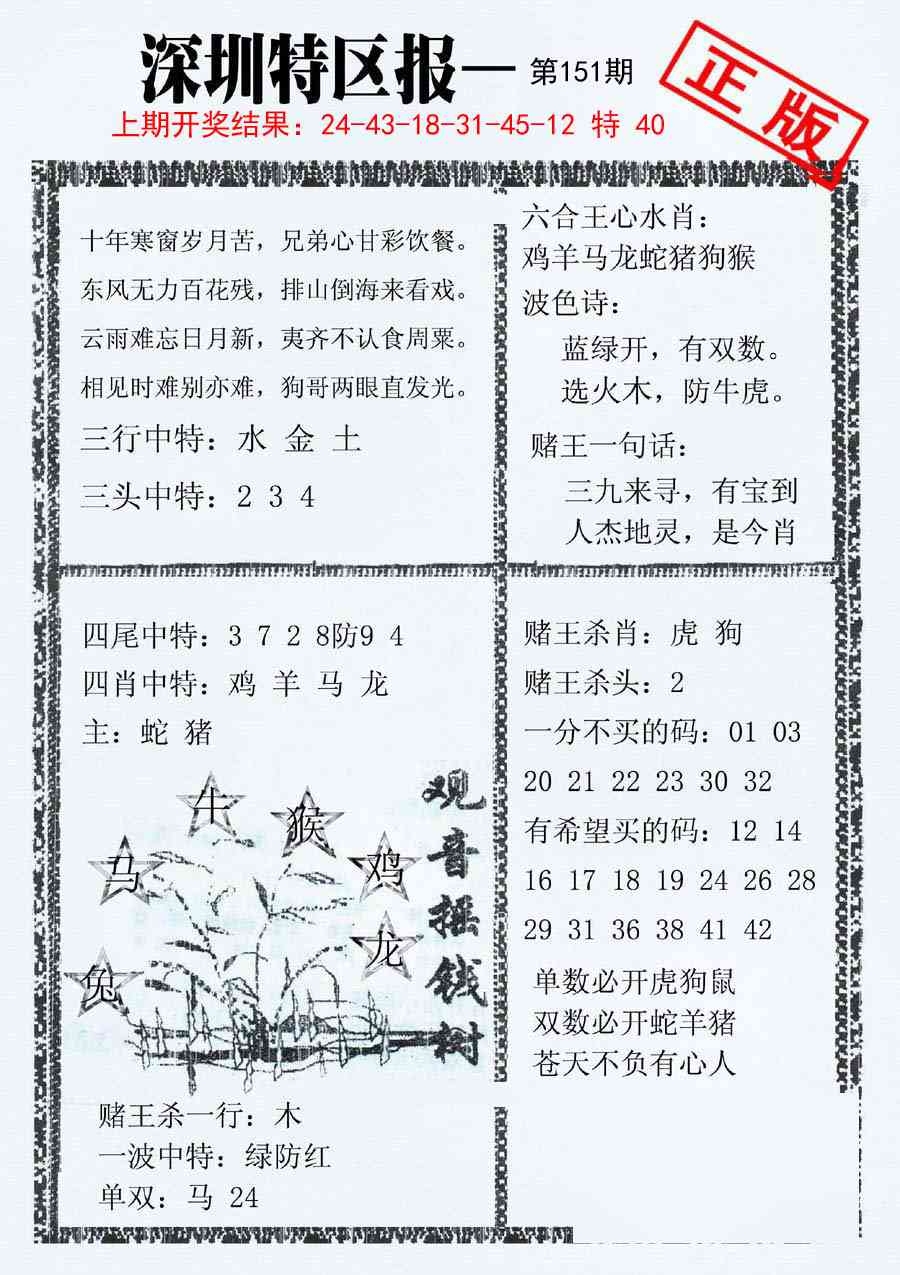 深圳特区报— 第151期
正版
上期开奖结果：24-43-18-31-45-12 特 40
十年寒窗岁月苦，兄弟心甘彩饮餐。
东风无力百花残，排山倒海来看戏。
云雨难忘日月新，夷齐不认食周粟。
相见时难别亦难，狗哥两眼直发光。
三行中特：水 金 土
三头中特：2 3 4
六合王心水肖：
鸡羊马龙蛇猪狗猴
波色诗：
蓝绿开，有双数。
选火木，防牛虎。
赌王一句话：
三九来寻，有宝到
人杰地灵，是今肖
四尾中特：3 7 2 8防9 4
四肖中特：鸡 羊 马 龙
主：蛇 猪
牛
猴
马
鸡
龙
兔
观音摇钱树
赌王杀一行：木
一波中特：绿防红
单双：马 24
赌王杀肖：虎 狗
赌王杀头：2
一分不买的码：01 03
20 21 22 23 30 32
有希望买的码：12 14
16 17 18 19 24 26 28
29 31 36 38 41 42
单数必开虎狗鼠
双数必开蛇羊猪
苍天不负有心人